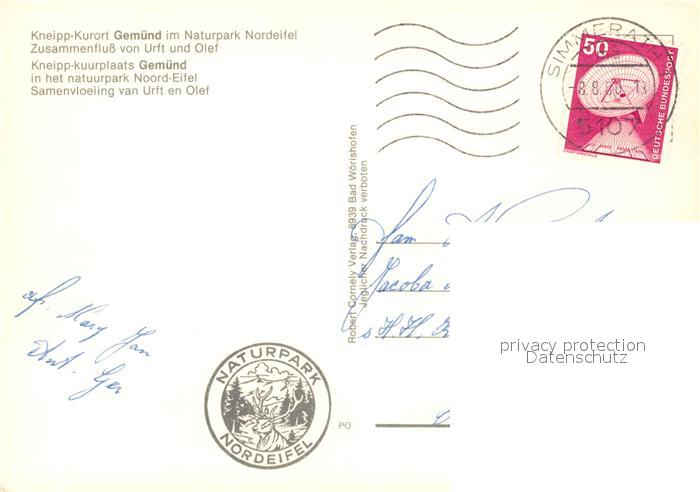 Kneipp-Kurort Gemünd im Naturpark Nordeifel
Zusammenfluß von Urft und Olef
Kneipp-kuurplaats Gemünd
in het natuurpark Noord-Eifel
Samenvloeiing van Urft en Olef
SIMMERATH
5107
50
DEUTSCHE BUNDESPOST
Robert Cornely Verlag, 8939 Bad Wörishofen
Jeglicher Nachdruck verboten
Fam
Jacoba
s H. H.
afz. Mary Jan
Ant. Ger
privacy protection
Datenschutz
NATURPARK
NORDEIFEL
PO